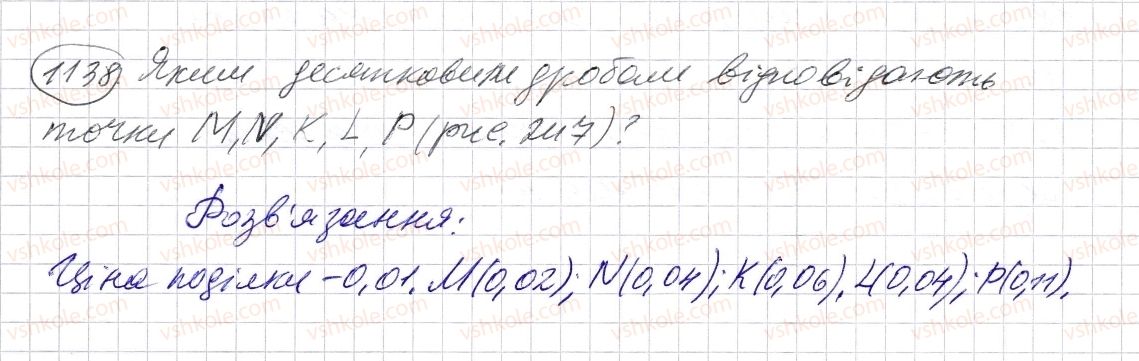 1138. Яким десятковим дробам відповідають
точки M, N, K, L, P (рис. 247)?
Розв'язання:
Ціна поділки – 0,01. M(0,02); N(0,04); K(0,06), L(0,04); P(0,11).